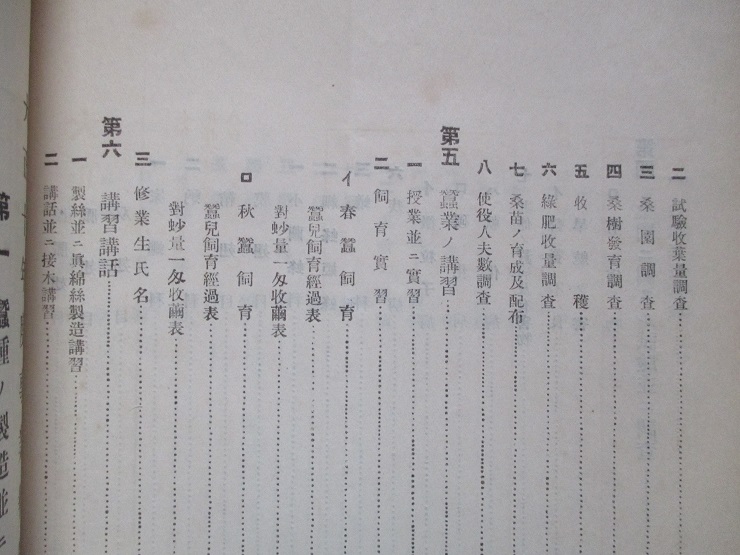 二 試驗收葉量調査
三 桑園調査
四 桑樹發育調査
五 收穫
六 綠肥收量調査
七 桑苗ノ育成及配布
八 使役人夫數調査
第五 蠶業ノ講習
一 授業並ニ實習
二 飼育實習
イ 春蠶飼育
蠶兒飼育經過表
對蚁量一匁收繭表
ロ 秋蠶飼育
蠶兒飼育經過表
對蚁量一匁收繭表
三 修業生氏名
第六 講習講話
一 製絲並ニ眞綿絲製造講習
二 講話並ニ接木講習
第一 蠶種ノ製造並ニ